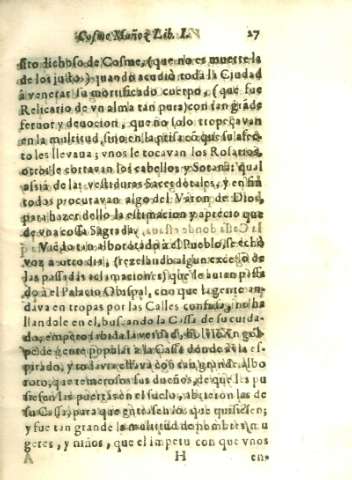 Cosme Muñoz Lib. I. 27
sito dichoso de Cosme, (que no es muerte la
de los justos) quando acudió toda la Ciudad
à venerar su mortificado cuerpo, (que fue
Relicario de vn alma tan pura) con tan grãde
feruor y deuocion, que no solo tropeçavan
en la multitud, sino en la prisa cõ que su afec-
to les llevaua; vnos le tocavan los Rosarios,
otros le cortavan los cabellos y Sotana: qual
assia de las vestiduras Sacerdotales, y en fin
todos procutavan algo del Varon de Dios,
para hazer dello la estimacion y aprecio que
de vna cosa Sagrada.
Viẽdo tan alborotado à el Pueblo, se echò
voz a otro dia, (rezelando algun excesso de
las passadas aclamaciones) que se auian passa
do à el Palacio Obispal, con que la gente an-
dava en tropas por las Calles confusa; no ha
llandole en el, buscando la Casa de su cuida-
do, empero sabida la verdad,
pe de gente popular à la Casa donde avia es-
pirado, y todavia estava con tan grande Albo
roto, que temerosos sus dueños, de que les pu
siesen las puertas en el suelo, abrieron las de
su Casa, para que entrasen los que quisiesen;
y fue tan grande la multitud de hombres, mu
geres, y niños, que el impetu con que vnos
A H en-